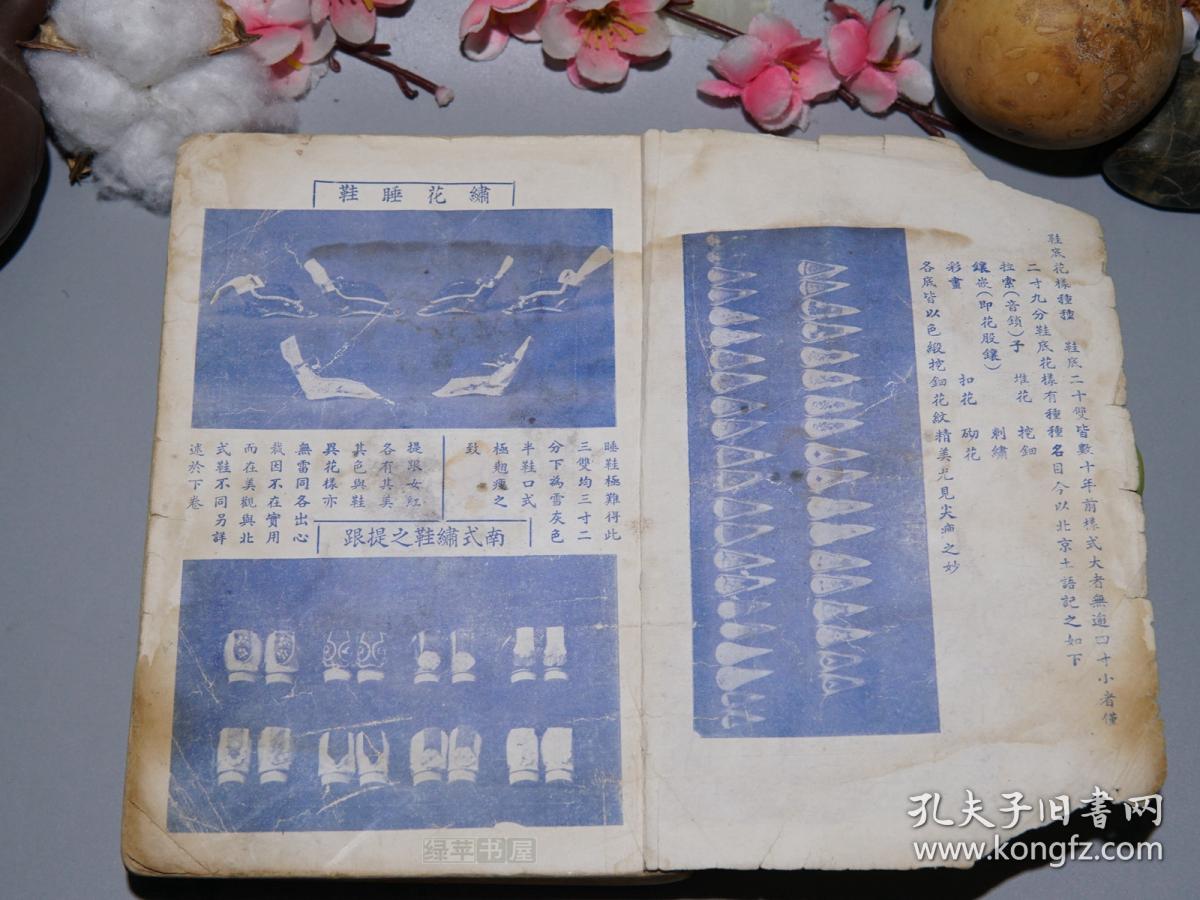 鞋底花樣種種　鞋底二十雙皆數十年前樣式大者無逾四寸小者僅
二寸九分鞋底花樣有種種名目今以北京土語記之如下
拉索(音鎖)子　堆花　挖鈿
鑲嵌(即花股鑲)　刺繡
彩畫　扣花　砌花
各底皆以色緞挖鈿花紋精美尤見尖瘦之妙
繡花睡鞋
睡鞋極難得此
三雙均三寸二
分下爲雪灰色
半鞋口式
極翹瘦之
致
南式繡鞋之提跟
提跟女紅
各有其美
其色與鞋
異花樣亦
無雷同各出心
裁因不在實用
而在美觀與北
式鞋不同另詳
述於下卷
绿苹书屋
孔夫子旧书网
www.kongfz.com